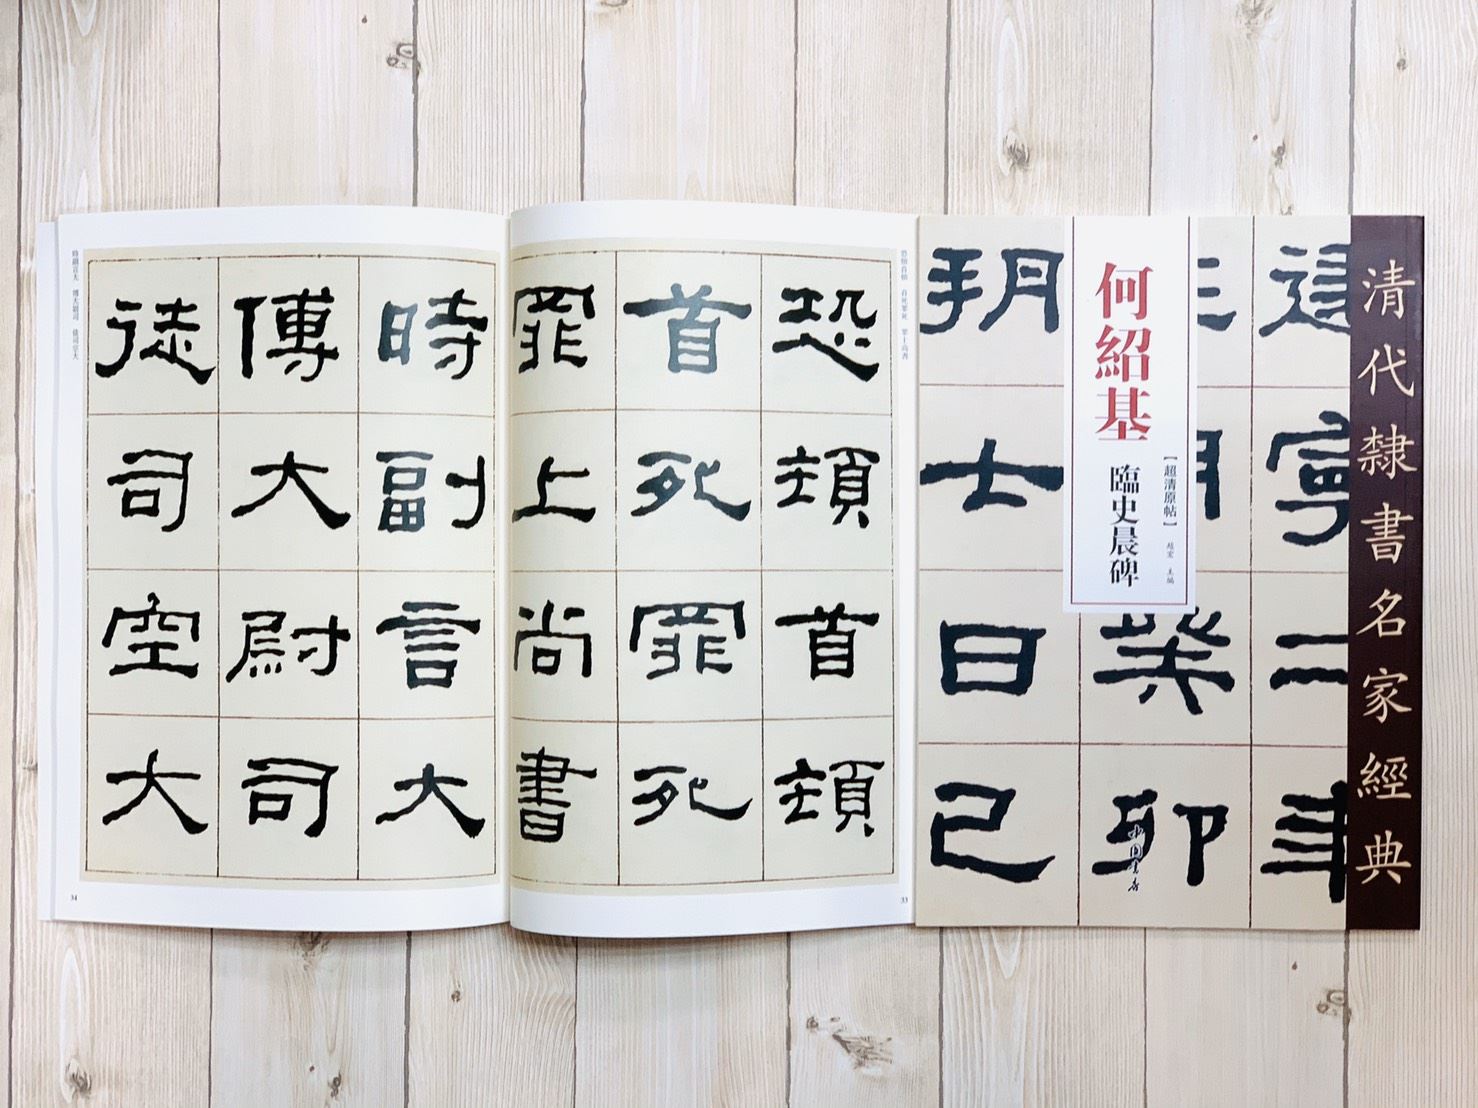 清代隸書名家經典
何紹基
臨史晨碑
【超清原帖】
趙宏 主編
中國書店
建寧二年
三月癸卯
朔七日己
恐頓首頓 首死罪死 罪上尚書
恐頓首頓
首死罪死
罪上尚書
33
時副言大
傅大尉司
徒司空大
時副言大 傅大尉司 徒司空大
34